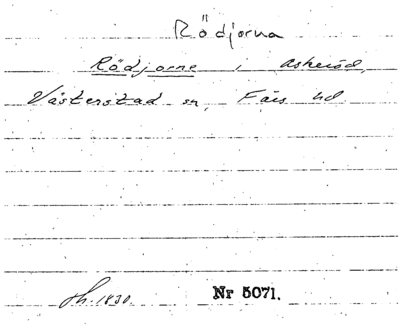 Rödjorna
Rödjorne i Askeröd,
Västerstad sn, Färs hd
Sh. 1830. Nr 5071.